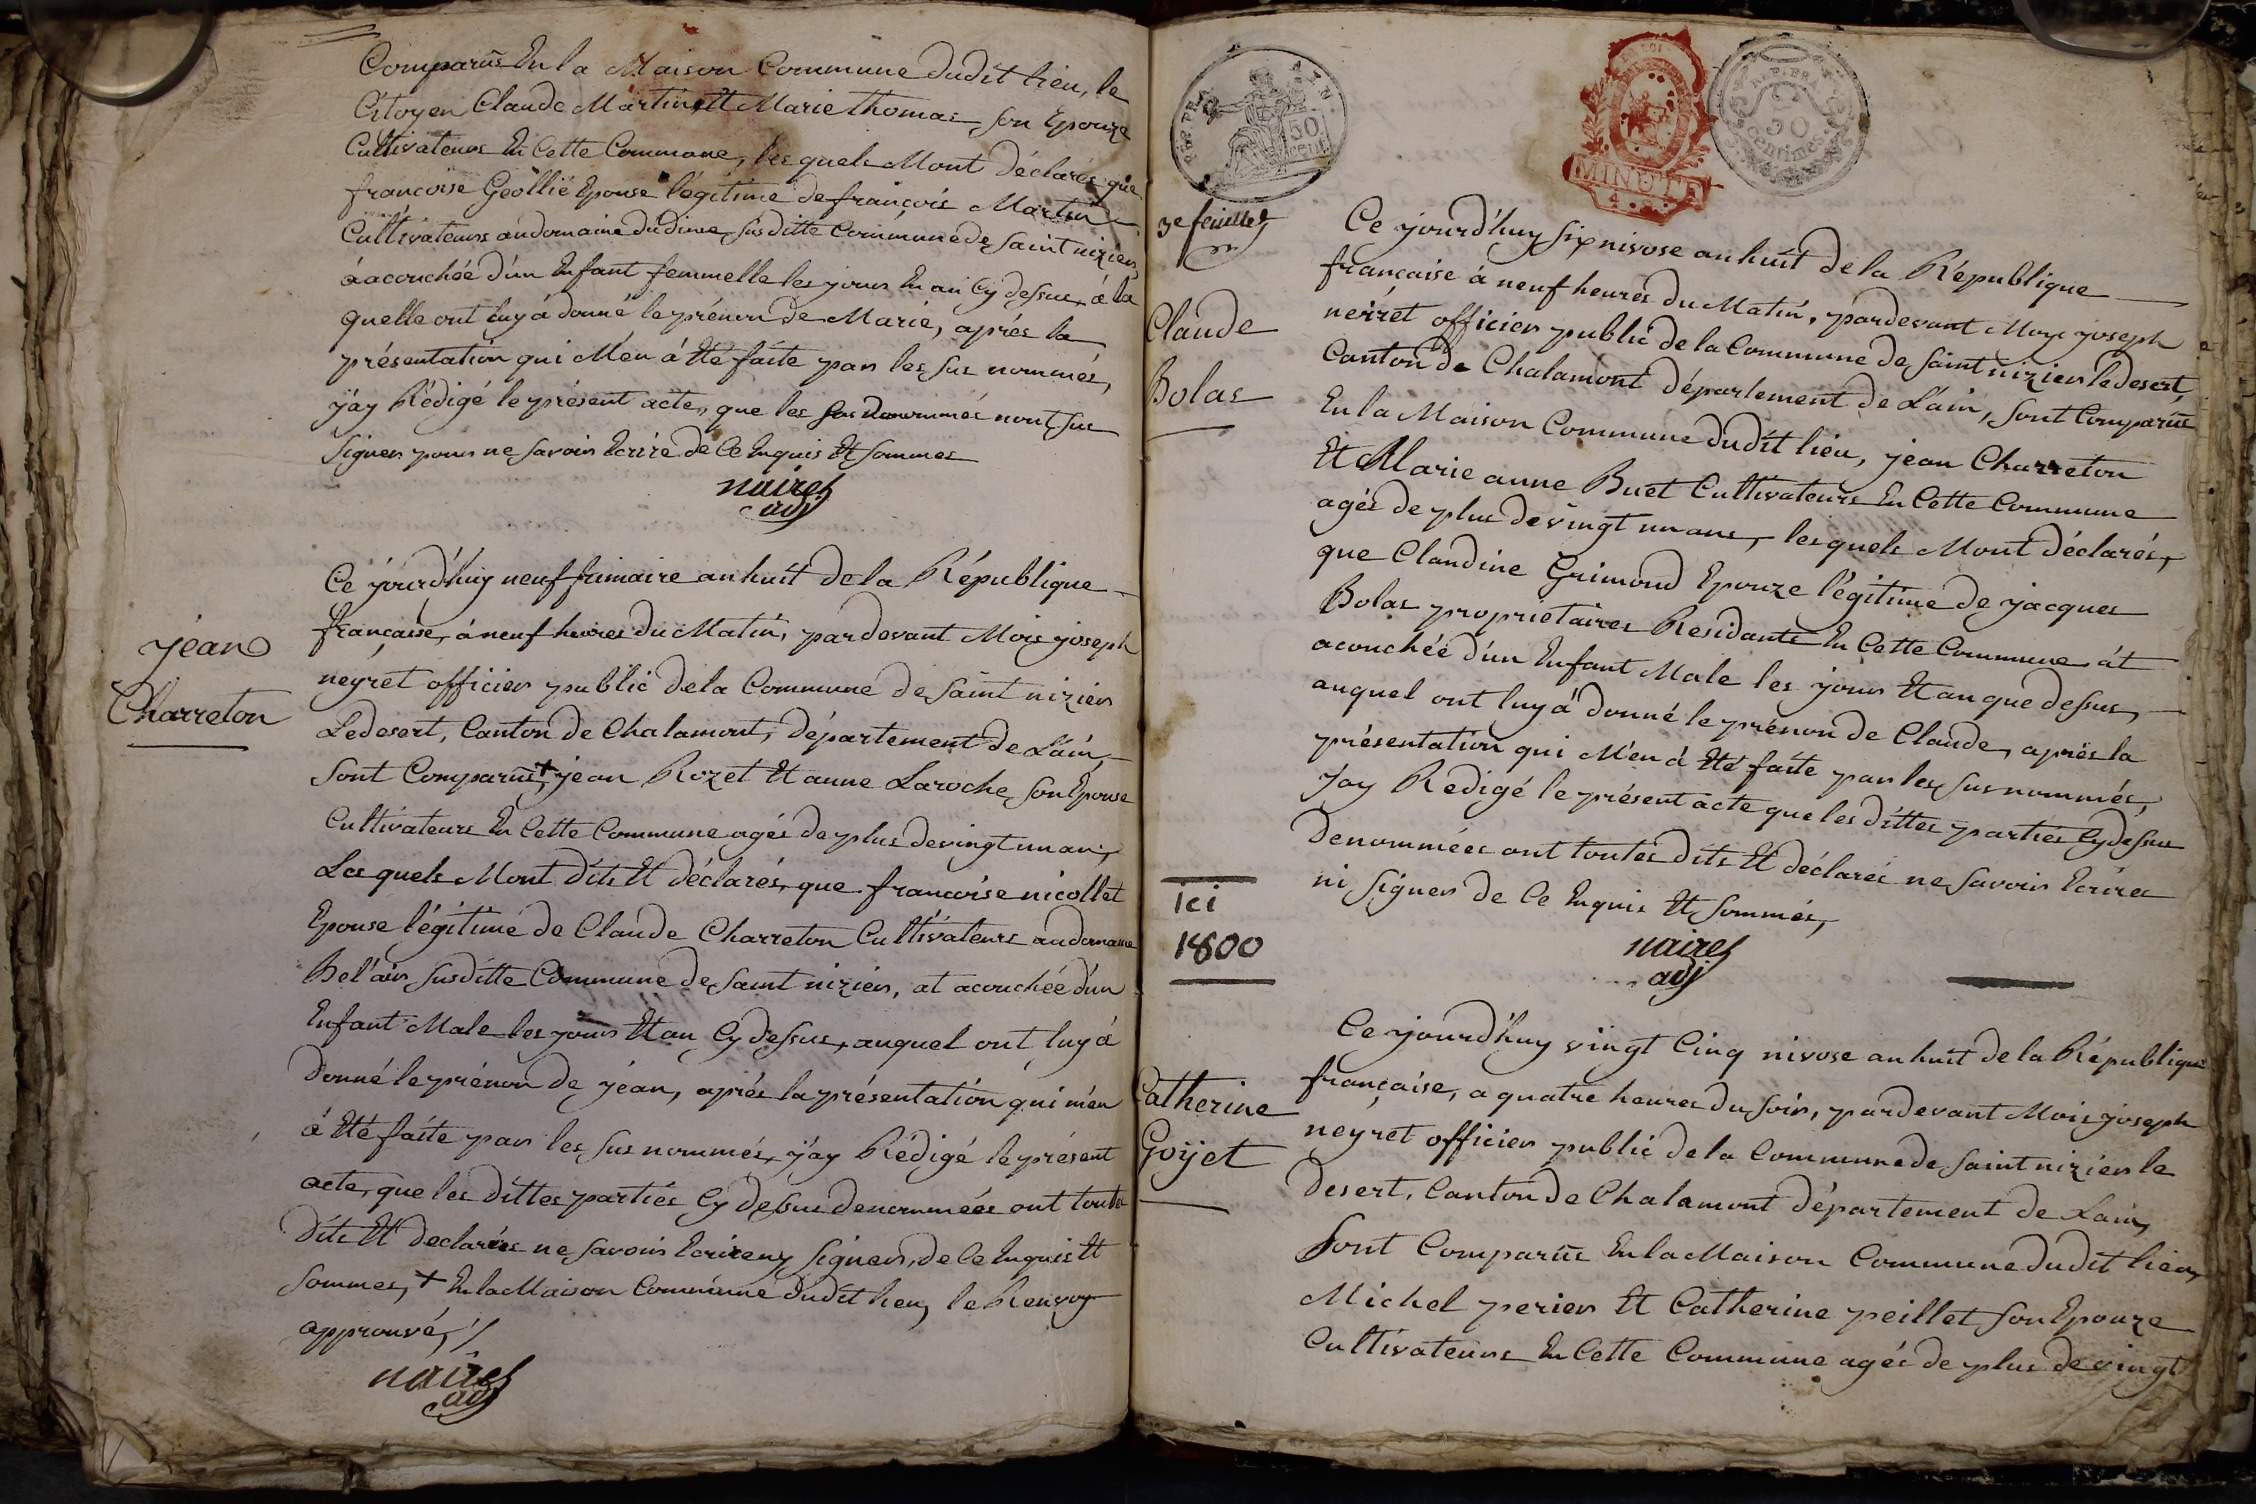 Comparus En la Maison Commune dudit lieu, le
Citoyen Claude Martin, Et Marie thomas son Epouze
Cultivateurs En Cette Commune, les quels Mont déclarés que
francoise Geollié Epouse légitime de françois Martin
Cultivateurs au domaine dudime susditte Commune de saint nizier,
à acouchée d'un Enfant femmelle les jours En an Cy dessus, à la
quelle ont luy à donné le prénon de Marie, après la
présentation qui M'en à Eté faite par les sus nommés,
j'ay Rédigé le présent acte, que les sus nommés nont sus
signer pour ne savoir Ecrire de Ce Enquis Et sommes
naires
adj
jean
Charreton
Ce jourd'huy neuf frimaire an huit de la République
française, à neuf heures du Matin, par devant Moi joseph
neyret officier public de la Commune de saint nizier
Le desert, Canton de Chalamont, département de L'ain,
sont Comparus + jean Rozet Et anne Laroche son Epouse
Cultivateurs En Cette Commune agés de plus de vingt un an,
Les quels Mont dits Et déclarés, que francoise nicollet
Epouse légitime de Claude Charreton Cultivateurs au domaine
Bel'air susditte Commune de saint nizier, at acouchée d'un
Enfant Male les jours Et an Cy dessus, auquel ont luy à
donné le prénon de jéan, après la présentation qui m'en
à Eté faite par les sus nommés, j'ay Rédigé le présent
acte, que les dittes parties Cy dessus denommées ont toutes
dits Et declarées ne savoir Ecrire ny signer, de Ce Enquis Et
sommes, + En la Maison Commune dudit lieu, le Renvoy
approuvé,
naires
adj
RÉP. FRA.
50
cent.
MINUTE
R.P. FRA.
50
centimes.
3e feuillet
Claude
Bolas
Ce jourd'huy six nivose an huit de la République
française à neuf heures du Matin, par devant Moy joseph
neiret officier public de la Commune de saint nizier le desert,
Canton de Chalamont département de L'ain, sont Comparus
En la Maison Commune dudit lieu, jean Charreton
Et Marie anne Buet Cultivateurs En Cette Commune
agés de plus de vingt un ans, les quels Mont déclarés,
que Claudine Grimond Epouze légitime de jacques
Bolas proprietaires Residants En Cette Commune at
acouchée d'un Enfant Male les jours Et an que dessus,
auquel ont luy à donné le prénon de Claude, après la
présentation qui M'en à Eté faite par les sus nommés,
j'ay Redigé le présent acte que les dittes parties Cy dessus
denommées ont toutes dits Et déclarés ne savoir Ecrires
ni signer de Ce Enquis Et sommés,
naires
adj
ici
1800
Catherine
Goÿet
Ce jourd'huy vingt Cinq nivose an huit de la République
française, a quatre heures du soir, par devant Moi joseph
neyret officier public de la Commune de saint nizier le
desert, Canton de Chalamont département de Lain,
sont Comparus En la Maison Commune dudit lieu,
Michel perier Et Catherine peillet son Epouze
Cultivateurs En Cette Commune agés de plus de vingt